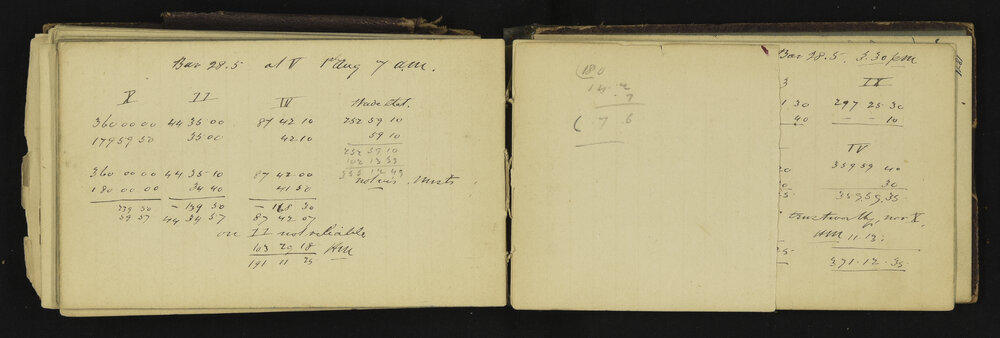 Bar 28.5 at V 1st Aug 7 a.m.
X II IV
360 00 00 44 35 00 87 42 10 252 59 10
179 59 50 35 00 42 10 59 10
252 59 10
360 00 00 44 35 10 87 42 00 102 13 53
180 00 00 34 40 41 50 355 12 49
239 50 - 139 50 - 168 30
59 57 44 34 57 87 42 07
on II not reliable
103 29 18 HM
191 11 25
(180
14.2
7
(.7 6
Bar 28.5. 3.30 pm
3 II
1 30 297 25 30
40 - - 10
IV
20 359 59 40
30
359,59,35
trustworthy, nor X
HM 11.13.
35 371.12.35